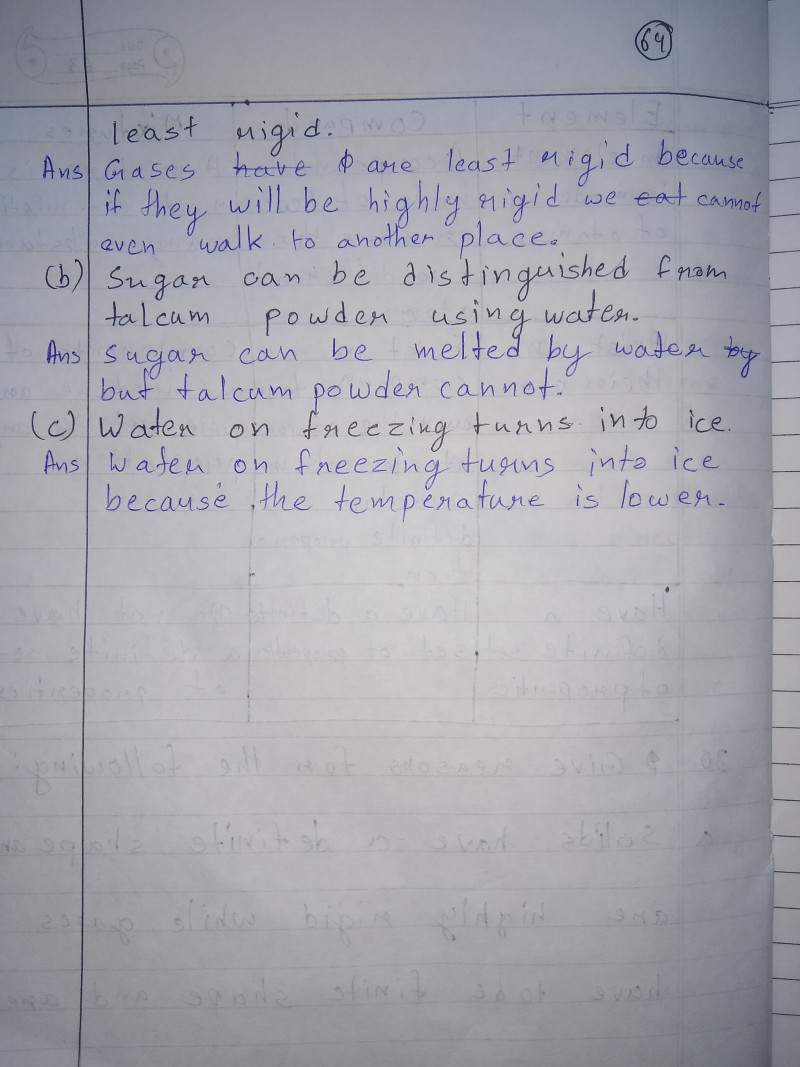 64
least rigid.
Ans Gases have are least rigid because
if they will be highly rigid we eat cannot
even walk to another place.
(b) Sugar can be distinguished from
talcum powder using water.
Ans Sugar can be melted by water by
but talcum powder cannot.
(c) Water on freezing turns into ice.
Ans Water on freezing turns into ice
because the temperature is lower.